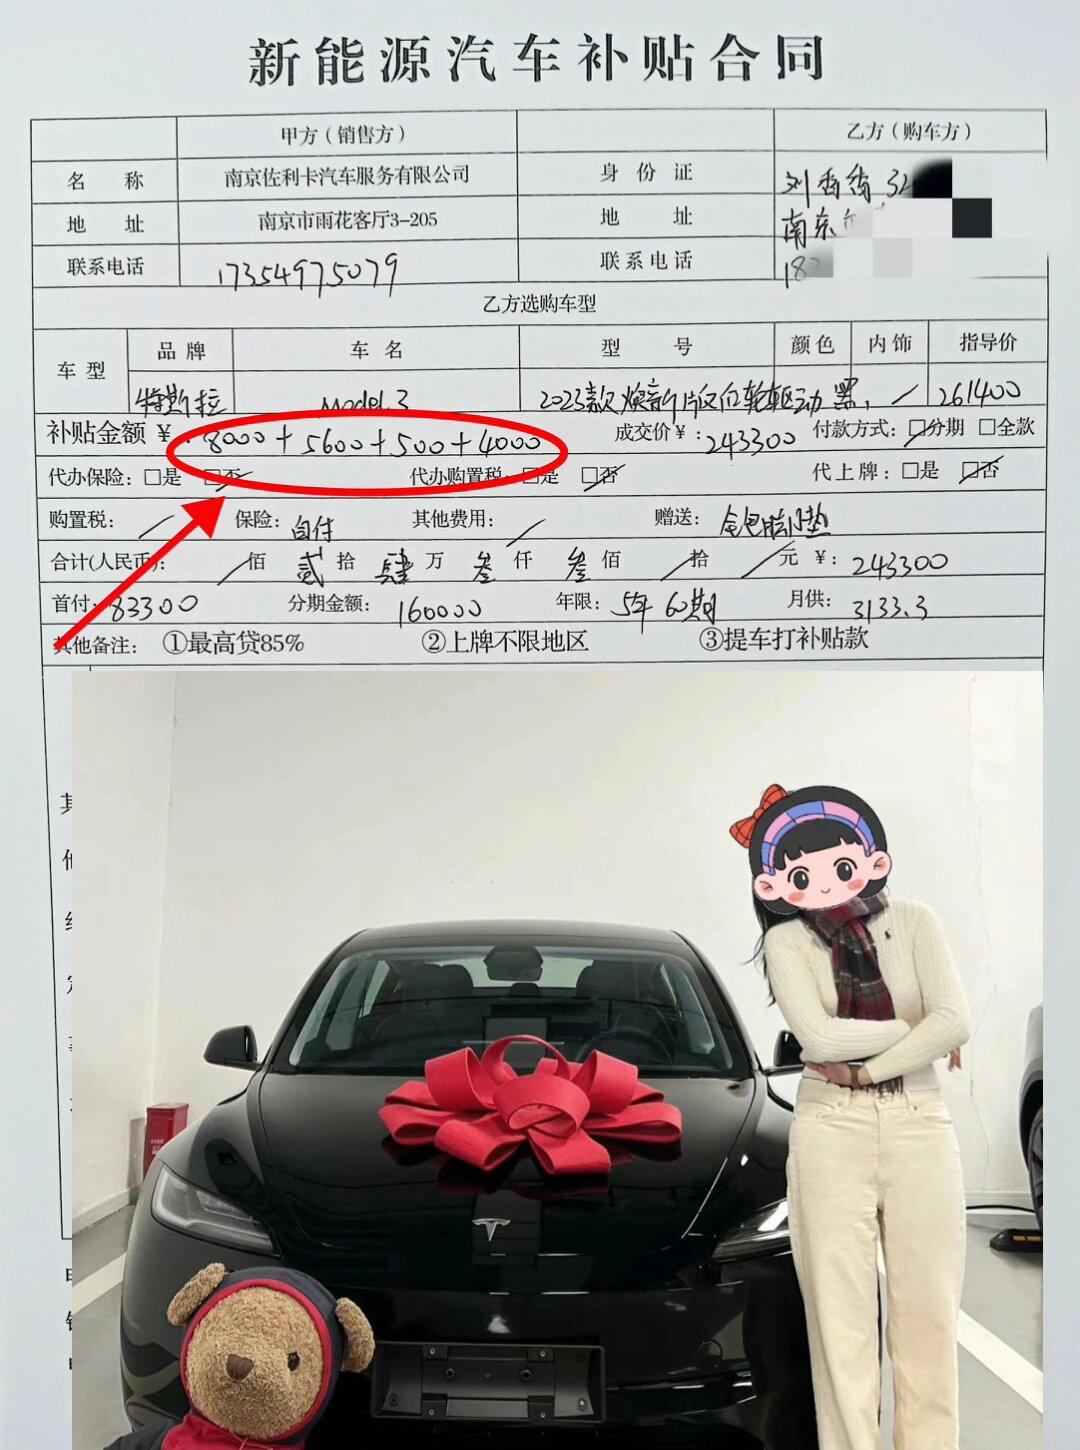 新能源汽车补贴合同
甲方（销售方） 乙方（购车方）
名 称 南京佐利卡汽车服务有限公司 身 份 证 刘香绮 32
地 址 南京市雨花客厅3-205 地 址 南京
联系电话 17354975079 联系电话 18
乙方选购车型
车 型 品 牌 车 名 型 号 颜色 内饰 指导价
特斯拉 Model 3 2023款 焕新版 后轮驱动 黑 / 261400
补贴金额 ¥：8000+5600+500+4000 成交价¥：243300 付款方式：☑分期 □全款
代办保险：□是 ☑否 代办购置税：□是 ☑否 代上牌：□是 ☑否
购置税： / 保险：自付 其他费用： / 赠送：全包脚垫
合计(人民币)： / 佰 贰 拾 肆 万 叁 仟 叁 佰 / 拾 / 元 ¥：243300
首付：83300 分期金额：160000 年限：5年 60期 月供：3133.3
其他备注： ①最高贷85% ②上牌不限地区 ③提车打补贴款